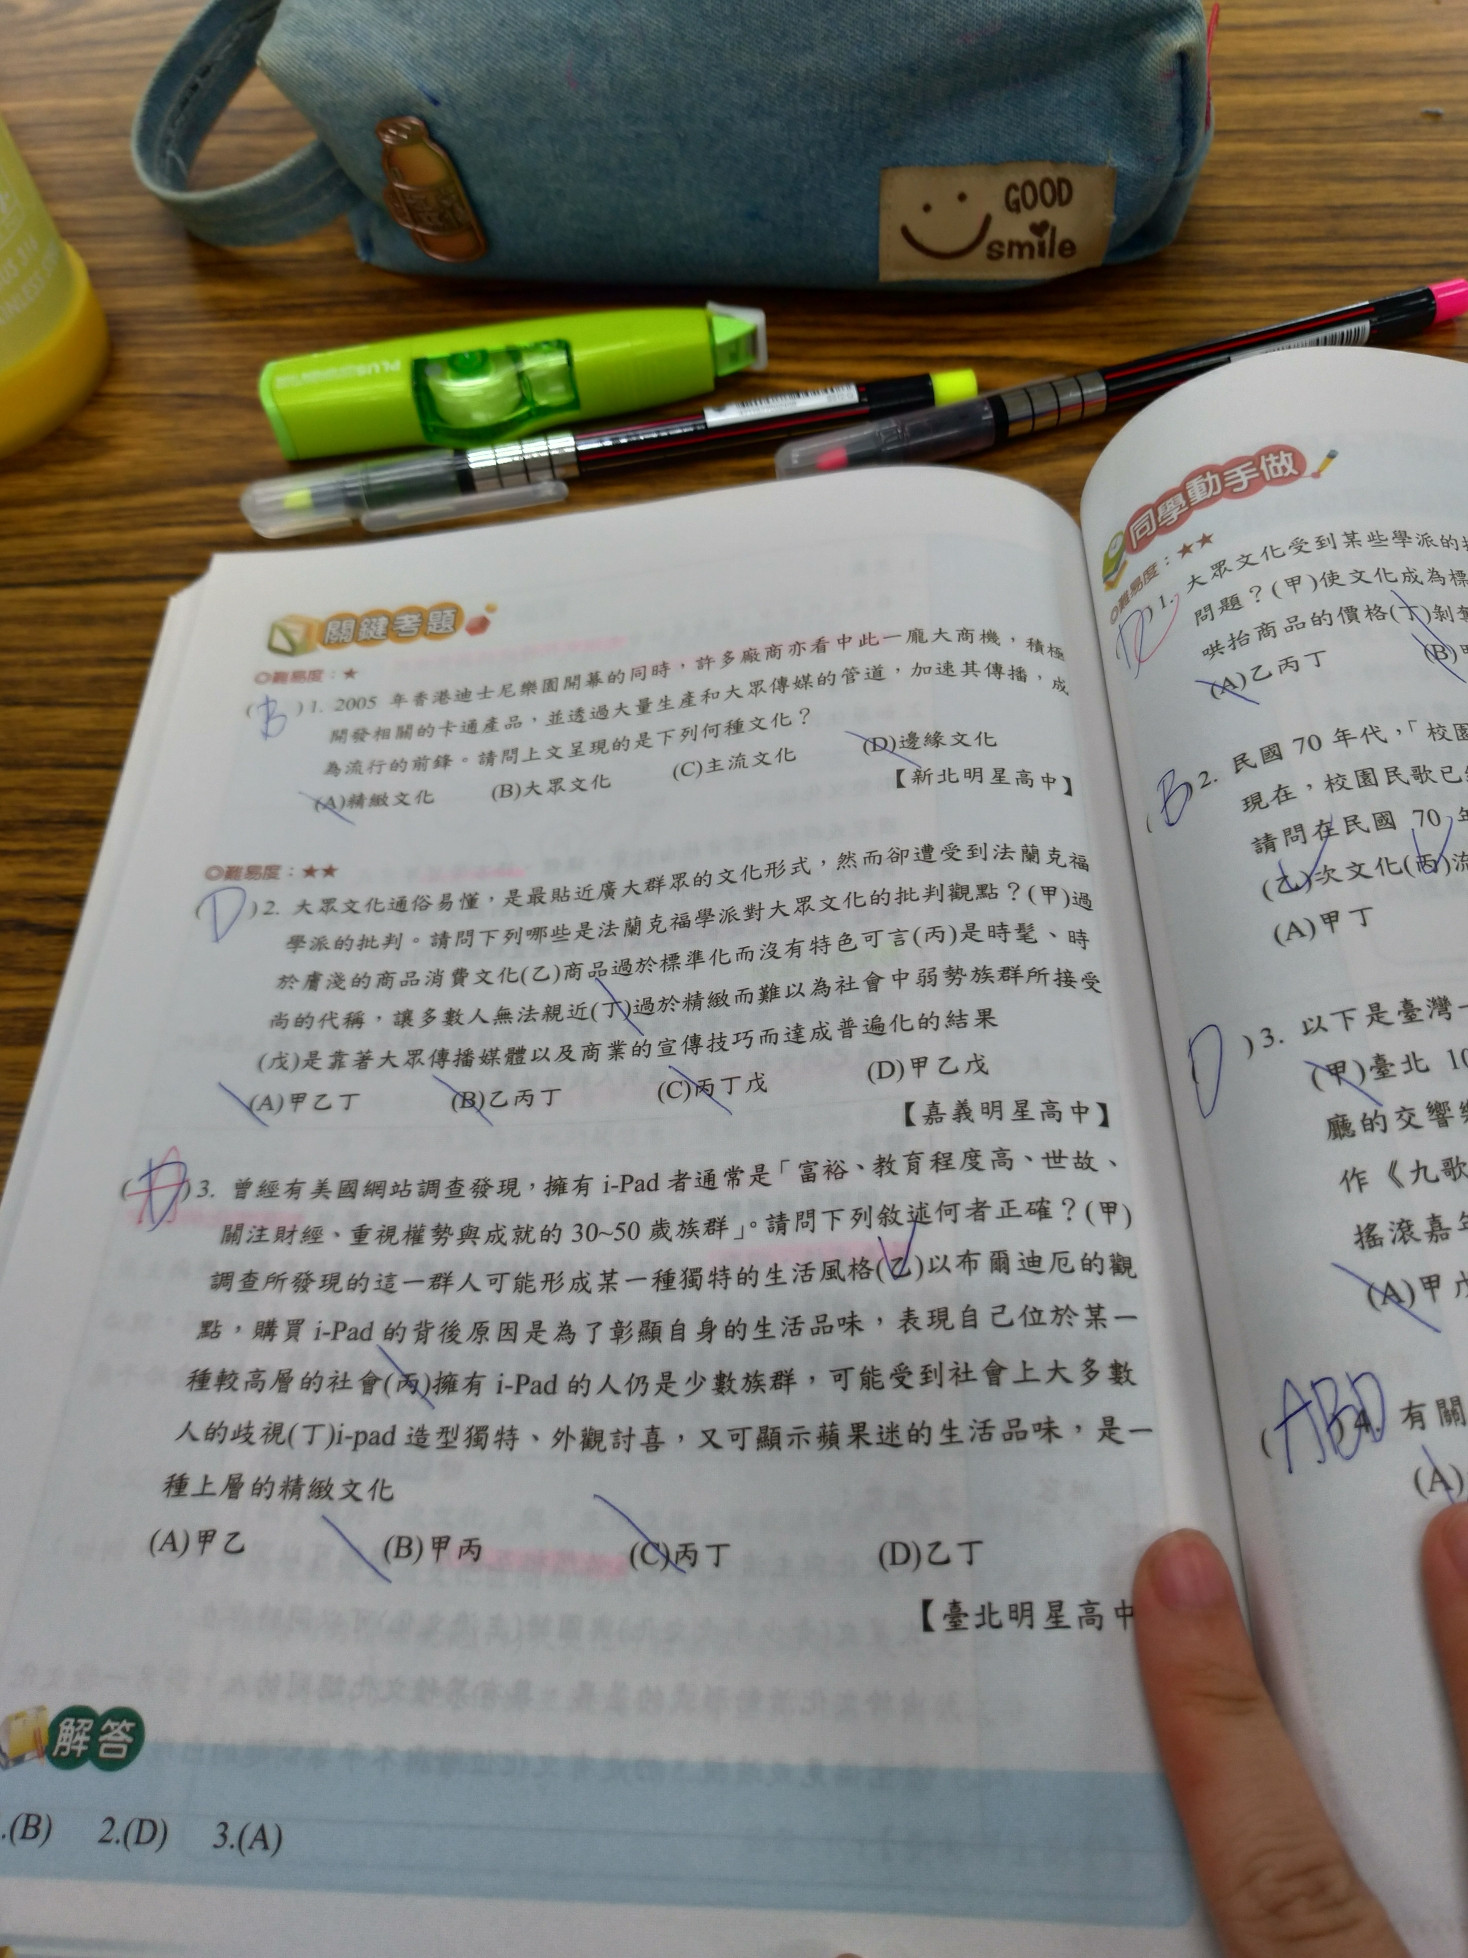 GOOD
smile
PLUS
關鍵考題
◎難易度：★
(B)1. 2005 年香港迪士尼樂園開幕的同時，許多廠商亦看中此一龐大商機，積極
開發相關的卡通產品，並透過大量生產和大眾傳媒的管道，加速其傳播，成
為流行的前鋒。請問上文呈現的是下列何種文化？
(A)精緻文化 (B)大眾文化 (C)主流文化 (D)邊緣文化
【新北明星高中】
◎難易度：★★
(D)2. 大眾文化通俗易懂，是最貼近廣大群眾的文化形式，然而卻遭受到法蘭克福
學派的批判。請問下列哪些是法蘭克福學派對大眾文化的批判觀點？(甲)過
於膚淺的商品消費文化(乙)商品過於標準化而沒有特色可言(丙)是時髦、時
尚的代稱，讓多數人無法親近(丁)過於精緻而難以為社會中弱勢族群所接受
(戊)是靠著大眾傳播媒體以及商業的宣傳技巧而達成普遍化的結果
(A)甲乙丁 (B)乙丙丁 (C)丙丁戊 (D)甲乙戊
【嘉義明星高中】
(D)3. 曾經有美國網站調查發現，擁有 i-Pad 者通常是「富裕、教育程度高、世故、
關注財經、重視權勢與成就的 30~50 歲族群」。請問下列敘述何者正確？(甲)
調查所發現的這一群人可能形成某一種獨特的生活風格(乙)以布爾迪厄的觀
點，購買 i-Pad 的背後原因是為了彰顯自身的生活品味，表現自己位於某一
種較高層的社會(丙)擁有 i-Pad 的人仍是少數族群，可能受到社會上大多數
人的歧視(丁)i-pad 造型獨特、外觀討喜，又可顯示蘋果迷的生活品味，是一
種上層的精緻文化
(A)甲乙 (B)甲丙 (C)丙丁 (D)乙丁
【臺北明星高中
解答
.(B) 2.(D) 3.(A)
同學動手做
◎難易度：★★
(D)1. 大眾文化受到某些學派的
問題？(甲)使文化成為標
哄抬商品的價格(丁)剝
(A)乙丙丁 (B)
(B)2. 民國 70 年代，「校園
現在，校園民歌已
請問在民國 70 年
(乙)次文化(丙)流
(A)甲丁
D)3. 以下是臺灣
(甲)臺北 10
廳的交響
作《九歌
搖滾嘉
(A)甲戊
(ABD)4. 有關
(A)